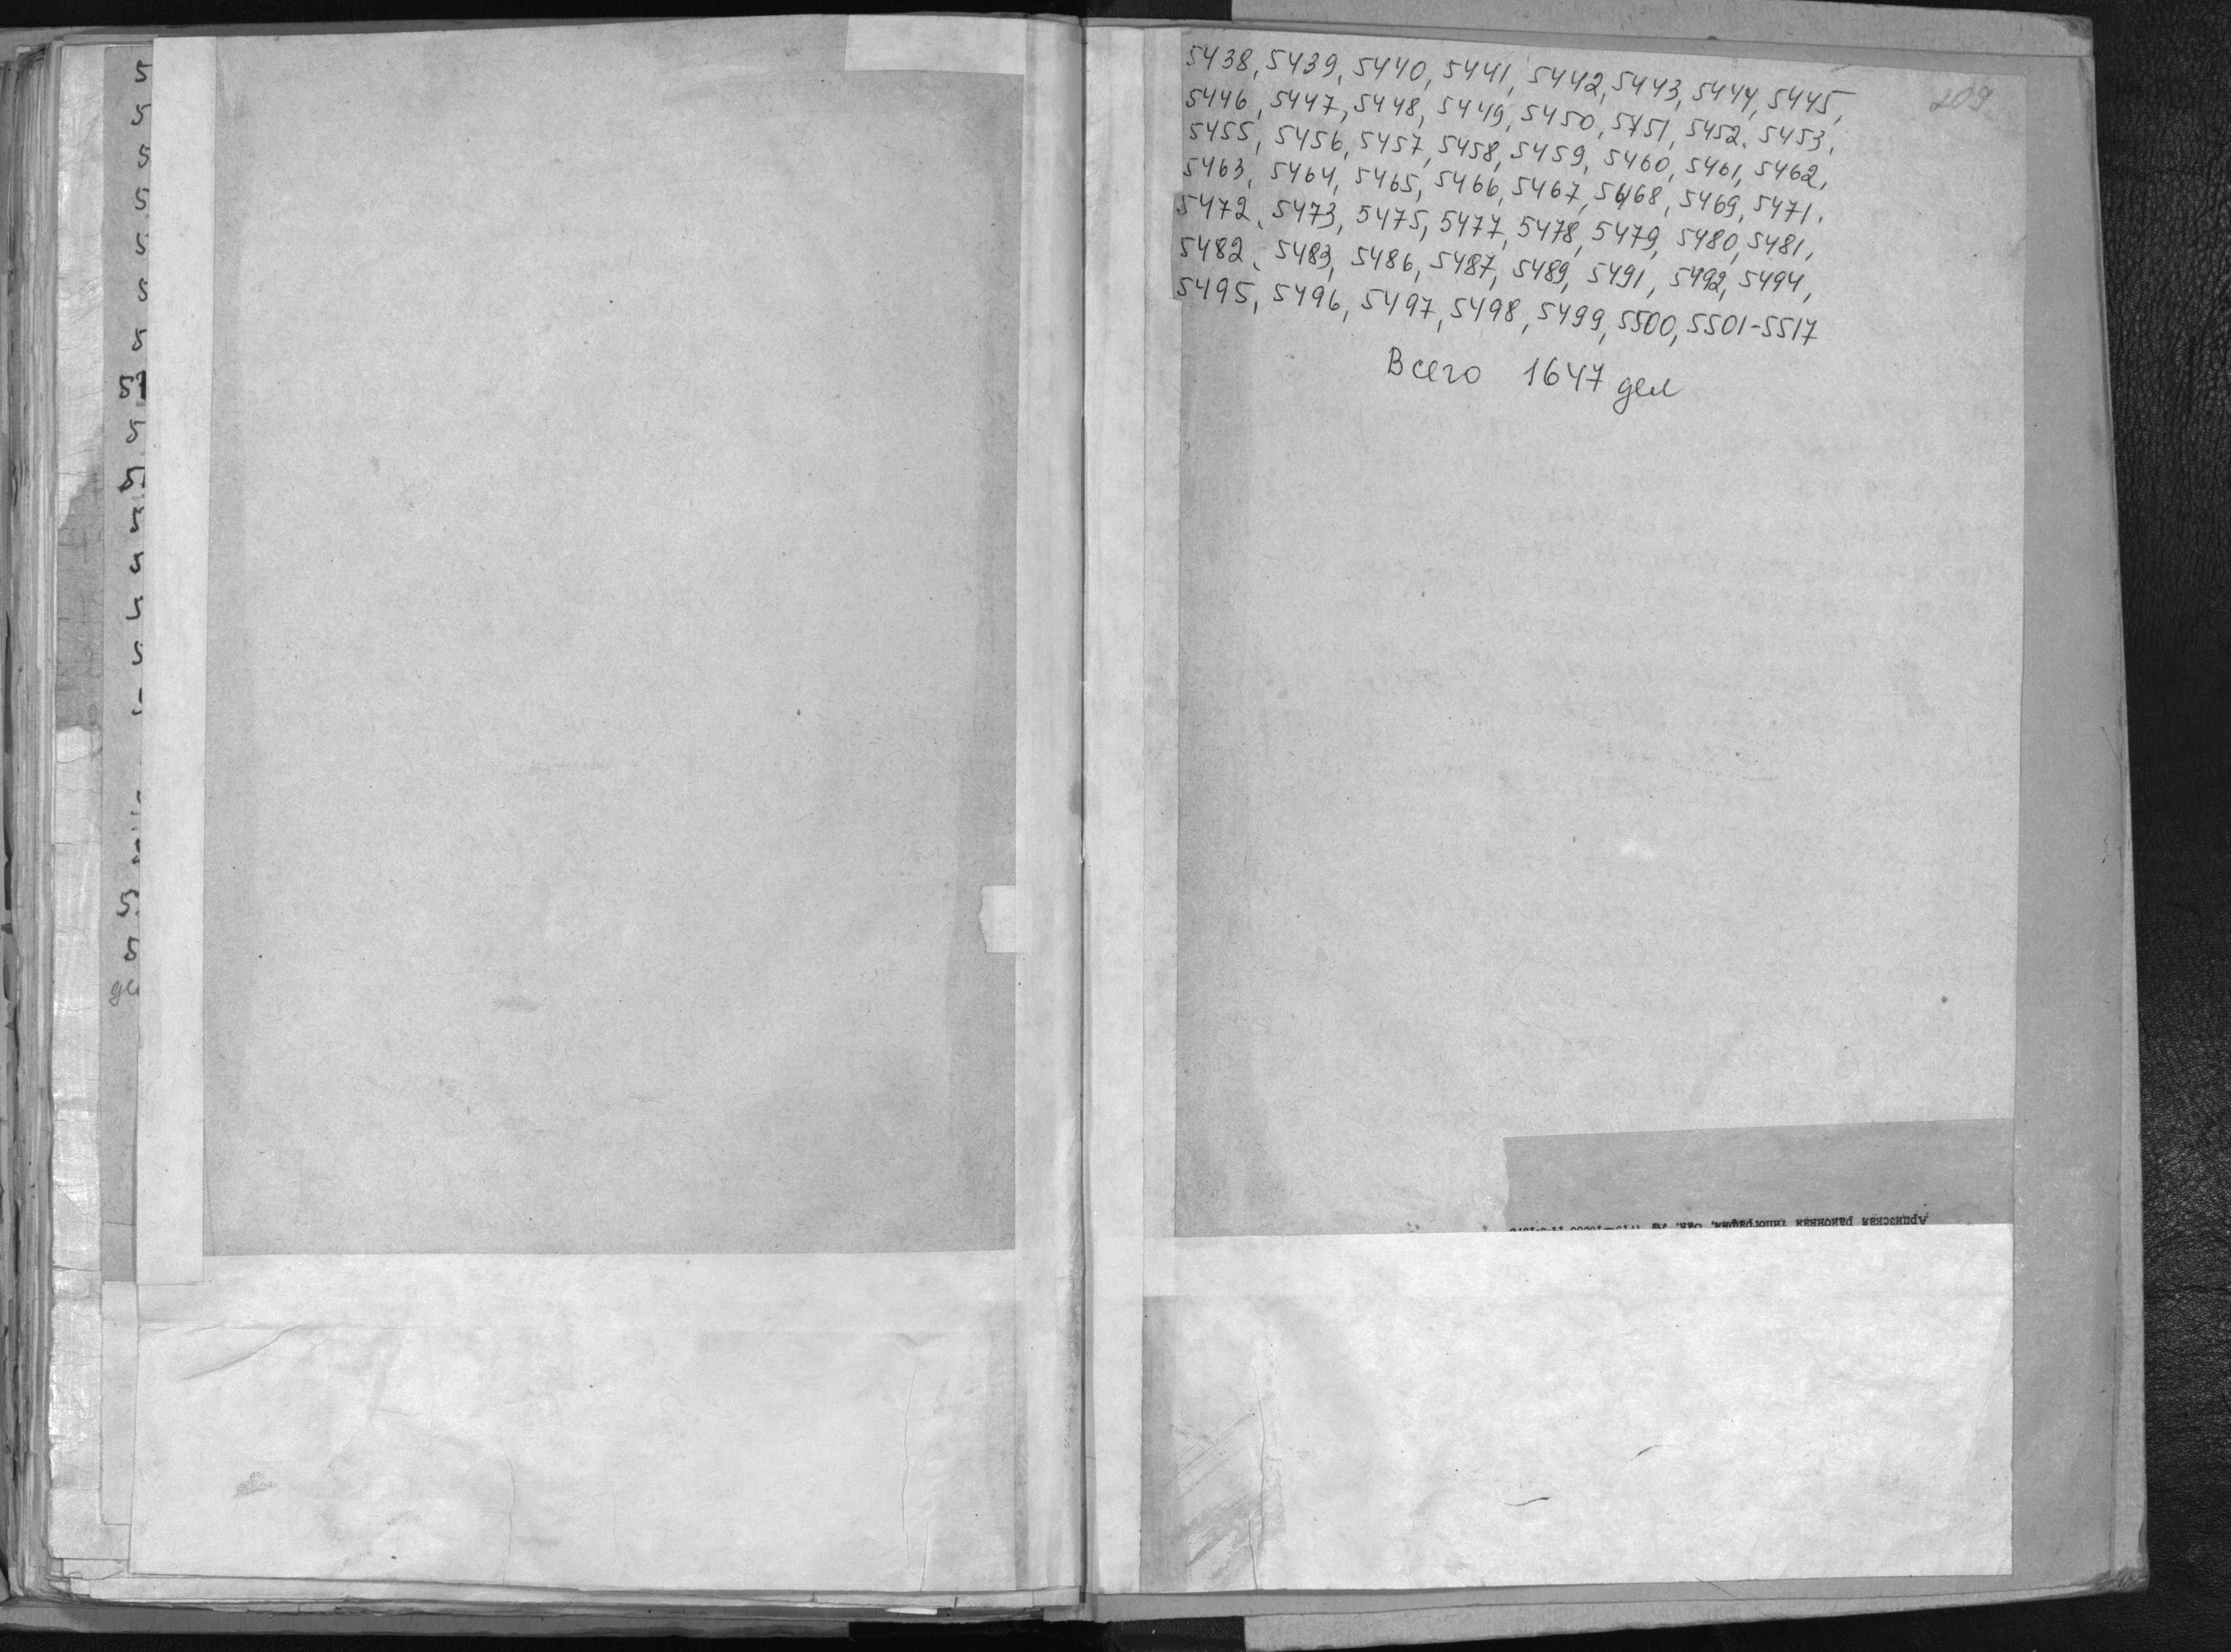 209
5438, 5439, 5440, 5441, 5442, 5443, 5444, 5445,
5446, 5447, 5448, 5449, 5450, 5451, 5452, 5453,
5455, 5456, 5457, 5458, 5459, 5460, 5461, 5462,
5463, 5464, 5465, 5466, 5467, 5468, 5469, 5471,
5472, 5473, 5475, 5477, 5478, 5479, 5480, 5481,
5482, 5483, 5486, 5487, 5489, 5491, 5492, 5494,
5495, 5496, 5497, 5498, 5499, 5500, 5501-5517
Всего 1647 дел
Арцизская районная типография. Зак. №